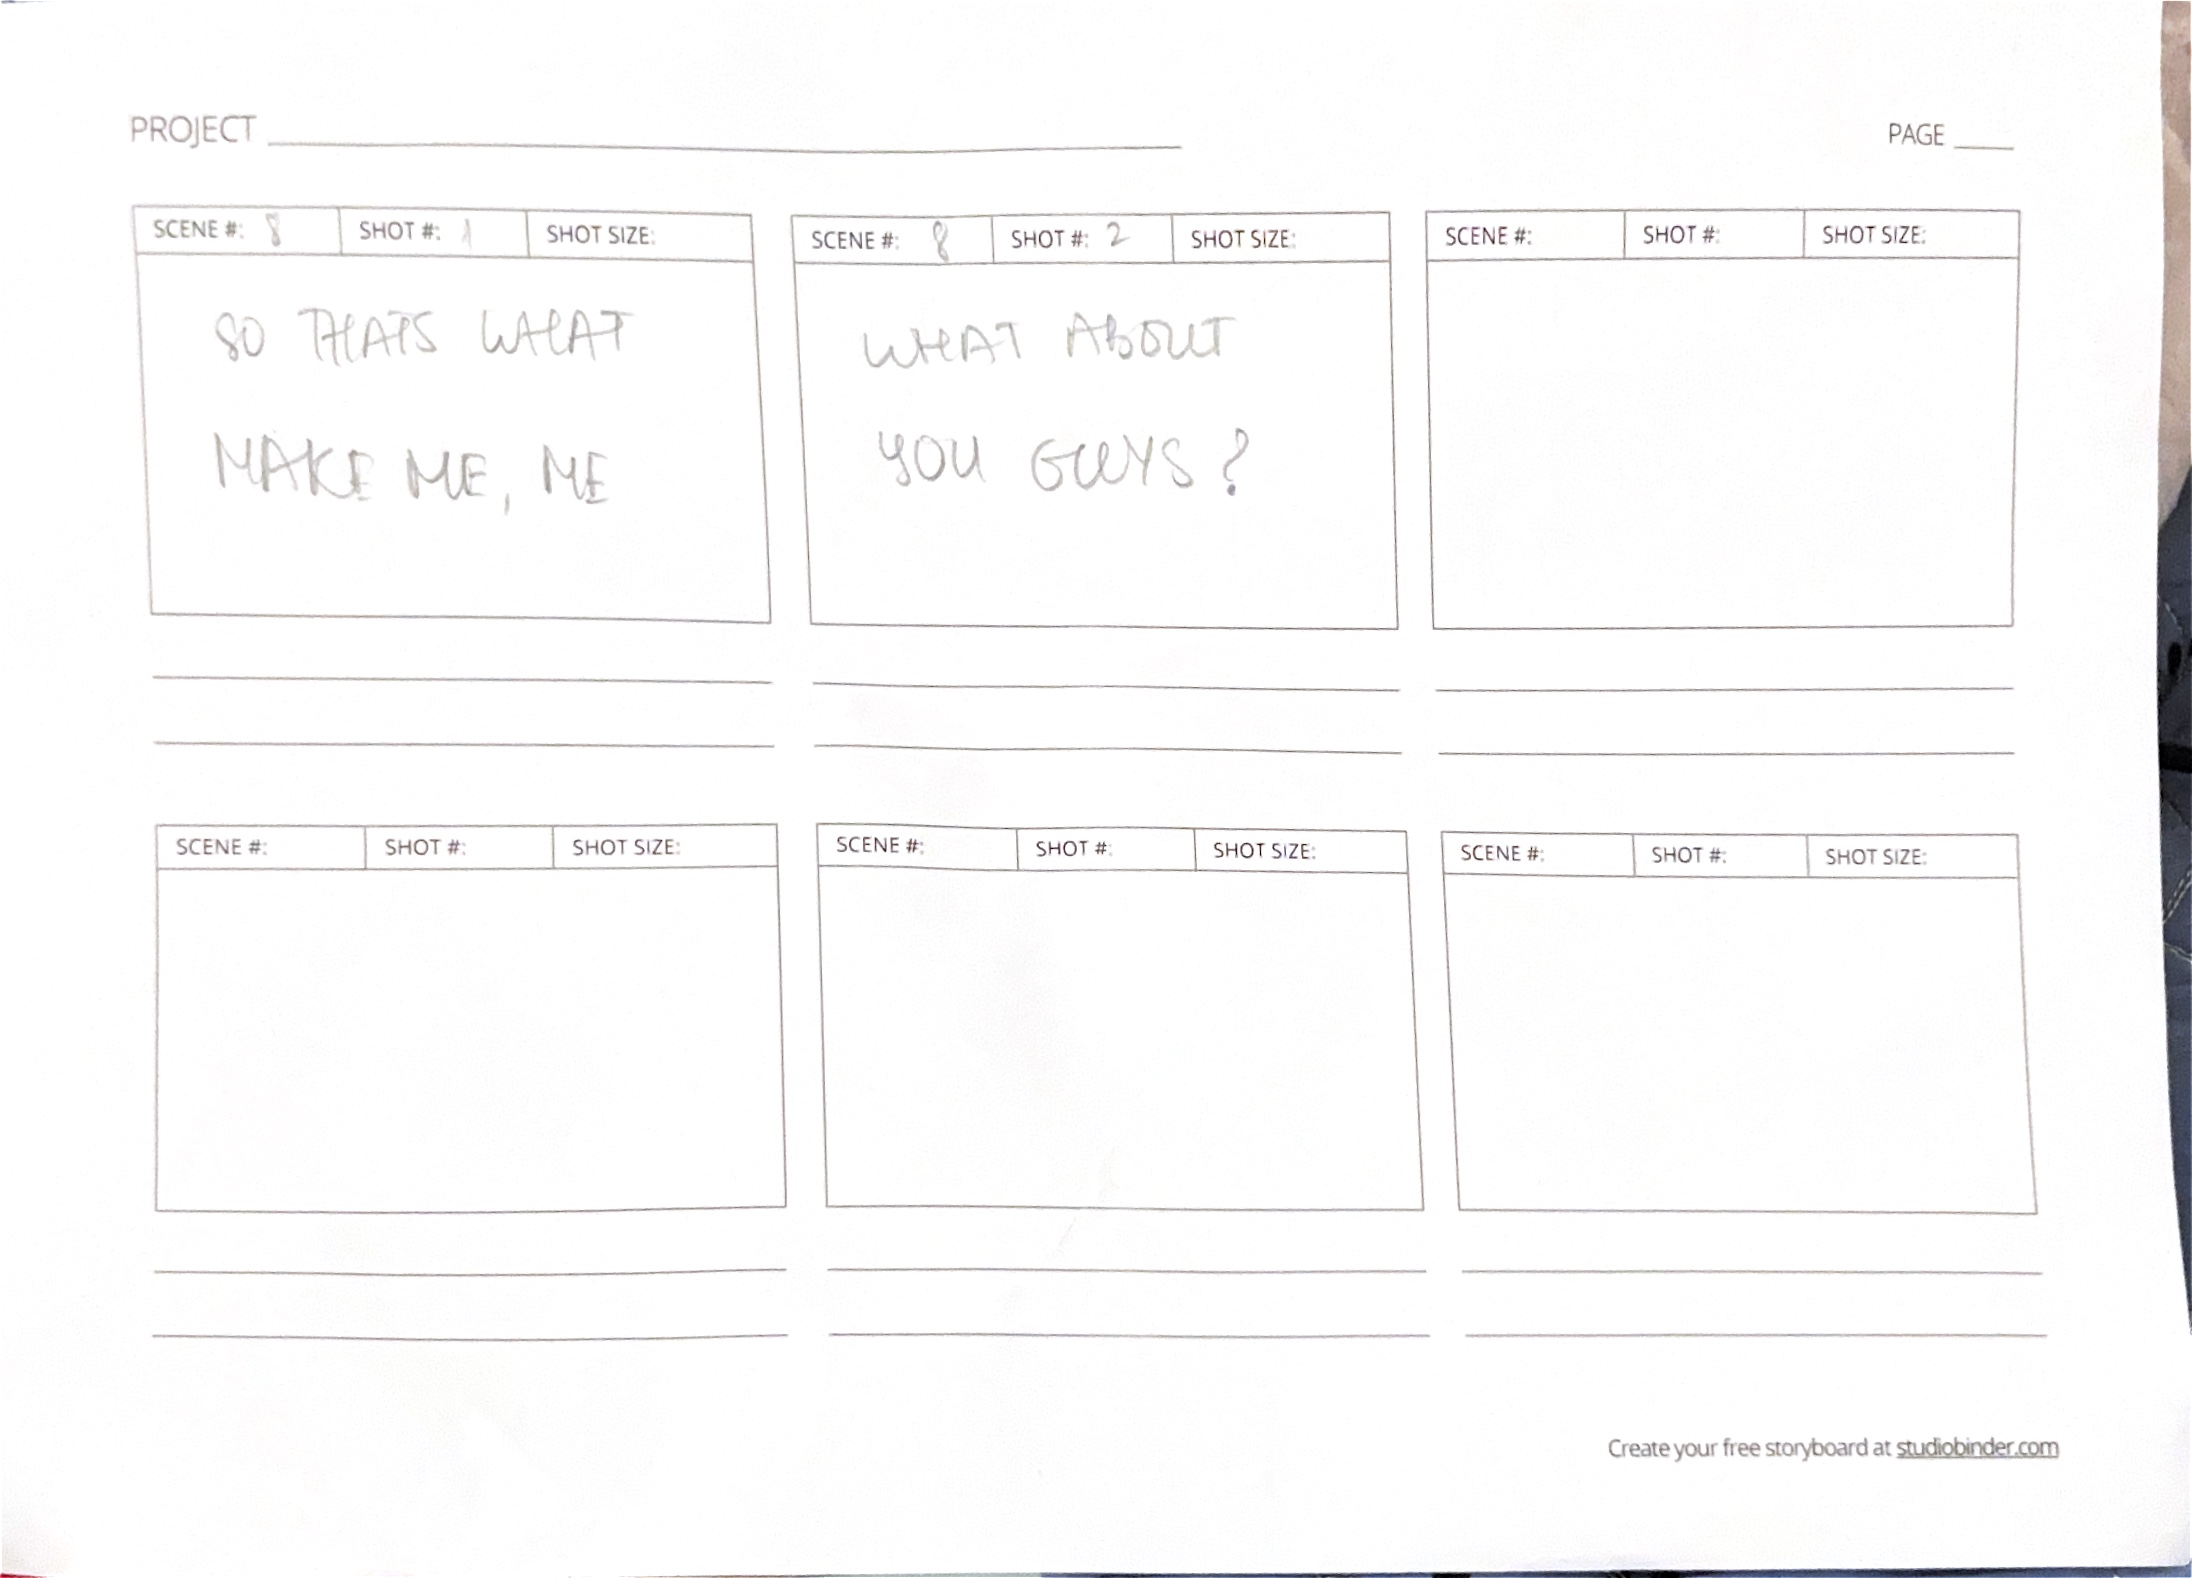 PROJECT
PAGE
SCENE #: 8 SHOT #: 1 SHOT SIZE:
SO THATS WHAT
MAKE ME, ME
SCENE #: 8 SHOT #: 2 SHOT SIZE:
WHAT ABOUT
YOU GUYS?
SCENE #: SHOT #: SHOT SIZE:
SCENE #: SHOT #: SHOT SIZE:
SCENE #: SHOT #: SHOT SIZE:
SCENE #: SHOT #: SHOT SIZE:
Create your free storyboard at studiobinder.com